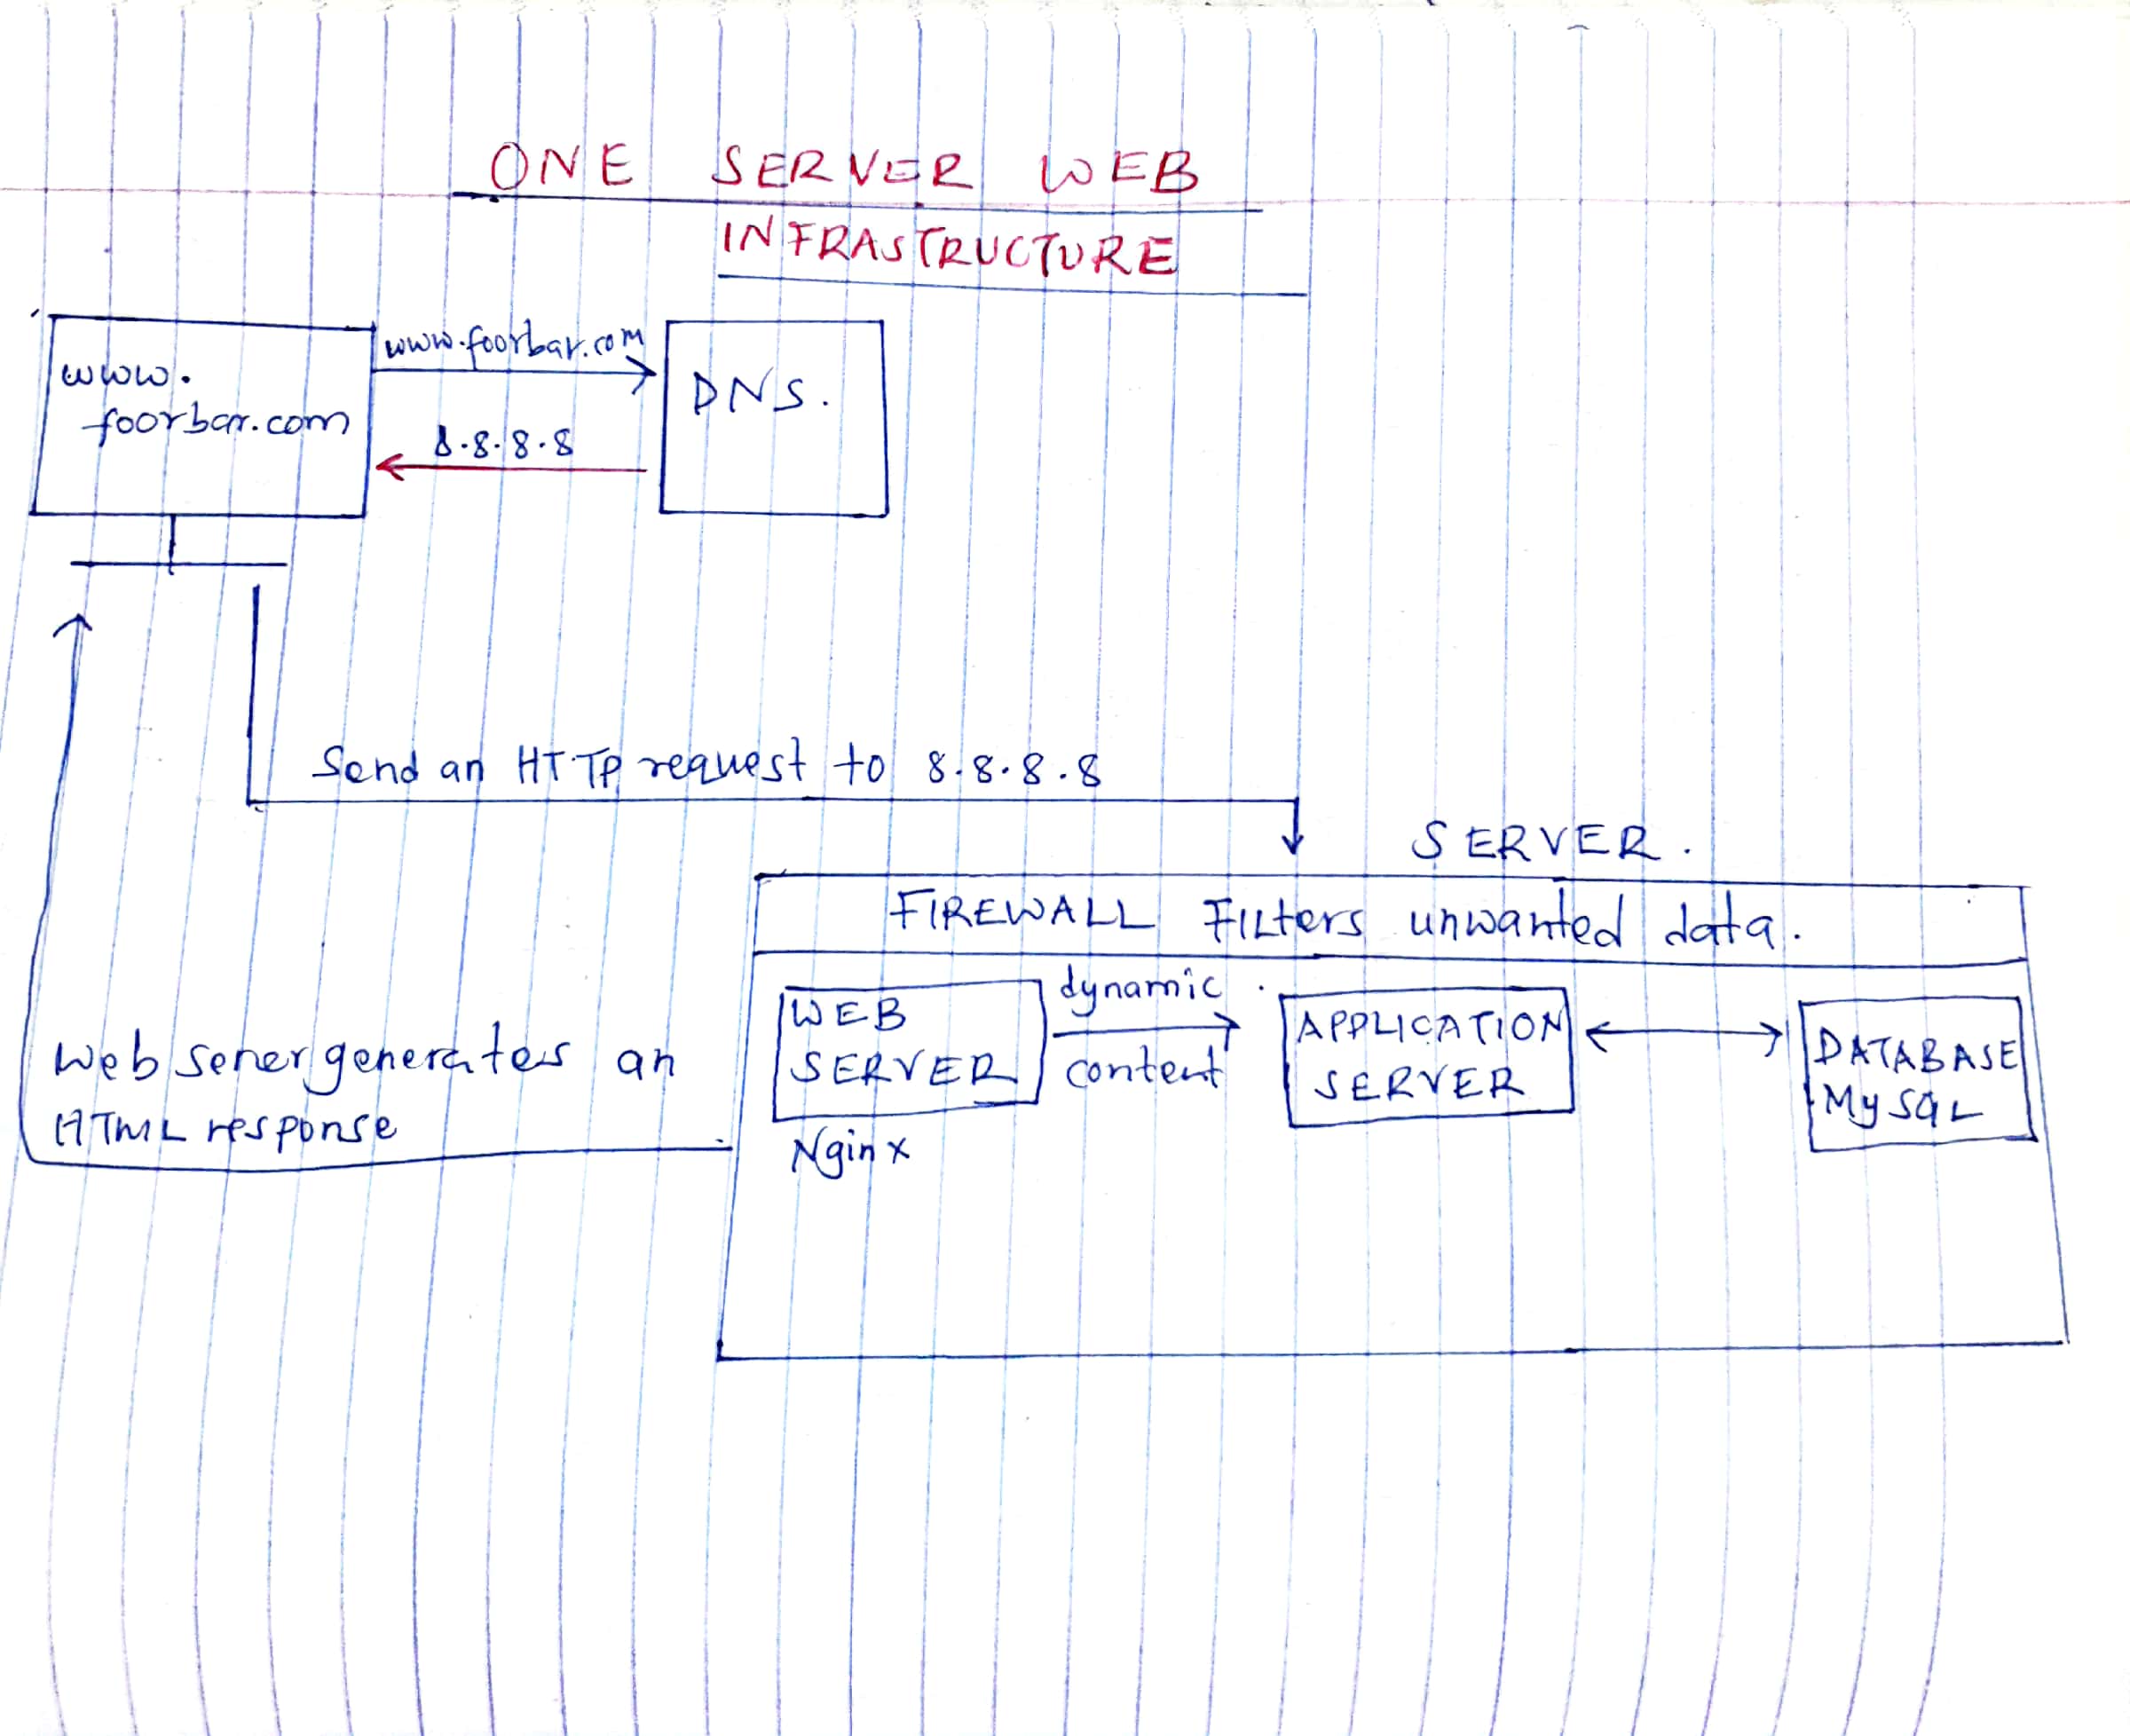 ONE SERVER WEB
INFRASTRUCTURE
www.
foorbar.com
www.foorbar.com
8.8.8.8
DNS.
Send an HTTP request to 8.8.8.8
SERVER.
FIREWALL Filters unwanted data.
WEB
SERVER
Nginx
dynamic
content
APPLICATION
SERVER
DATABASE
MySQL
Web server generates an
HTML response